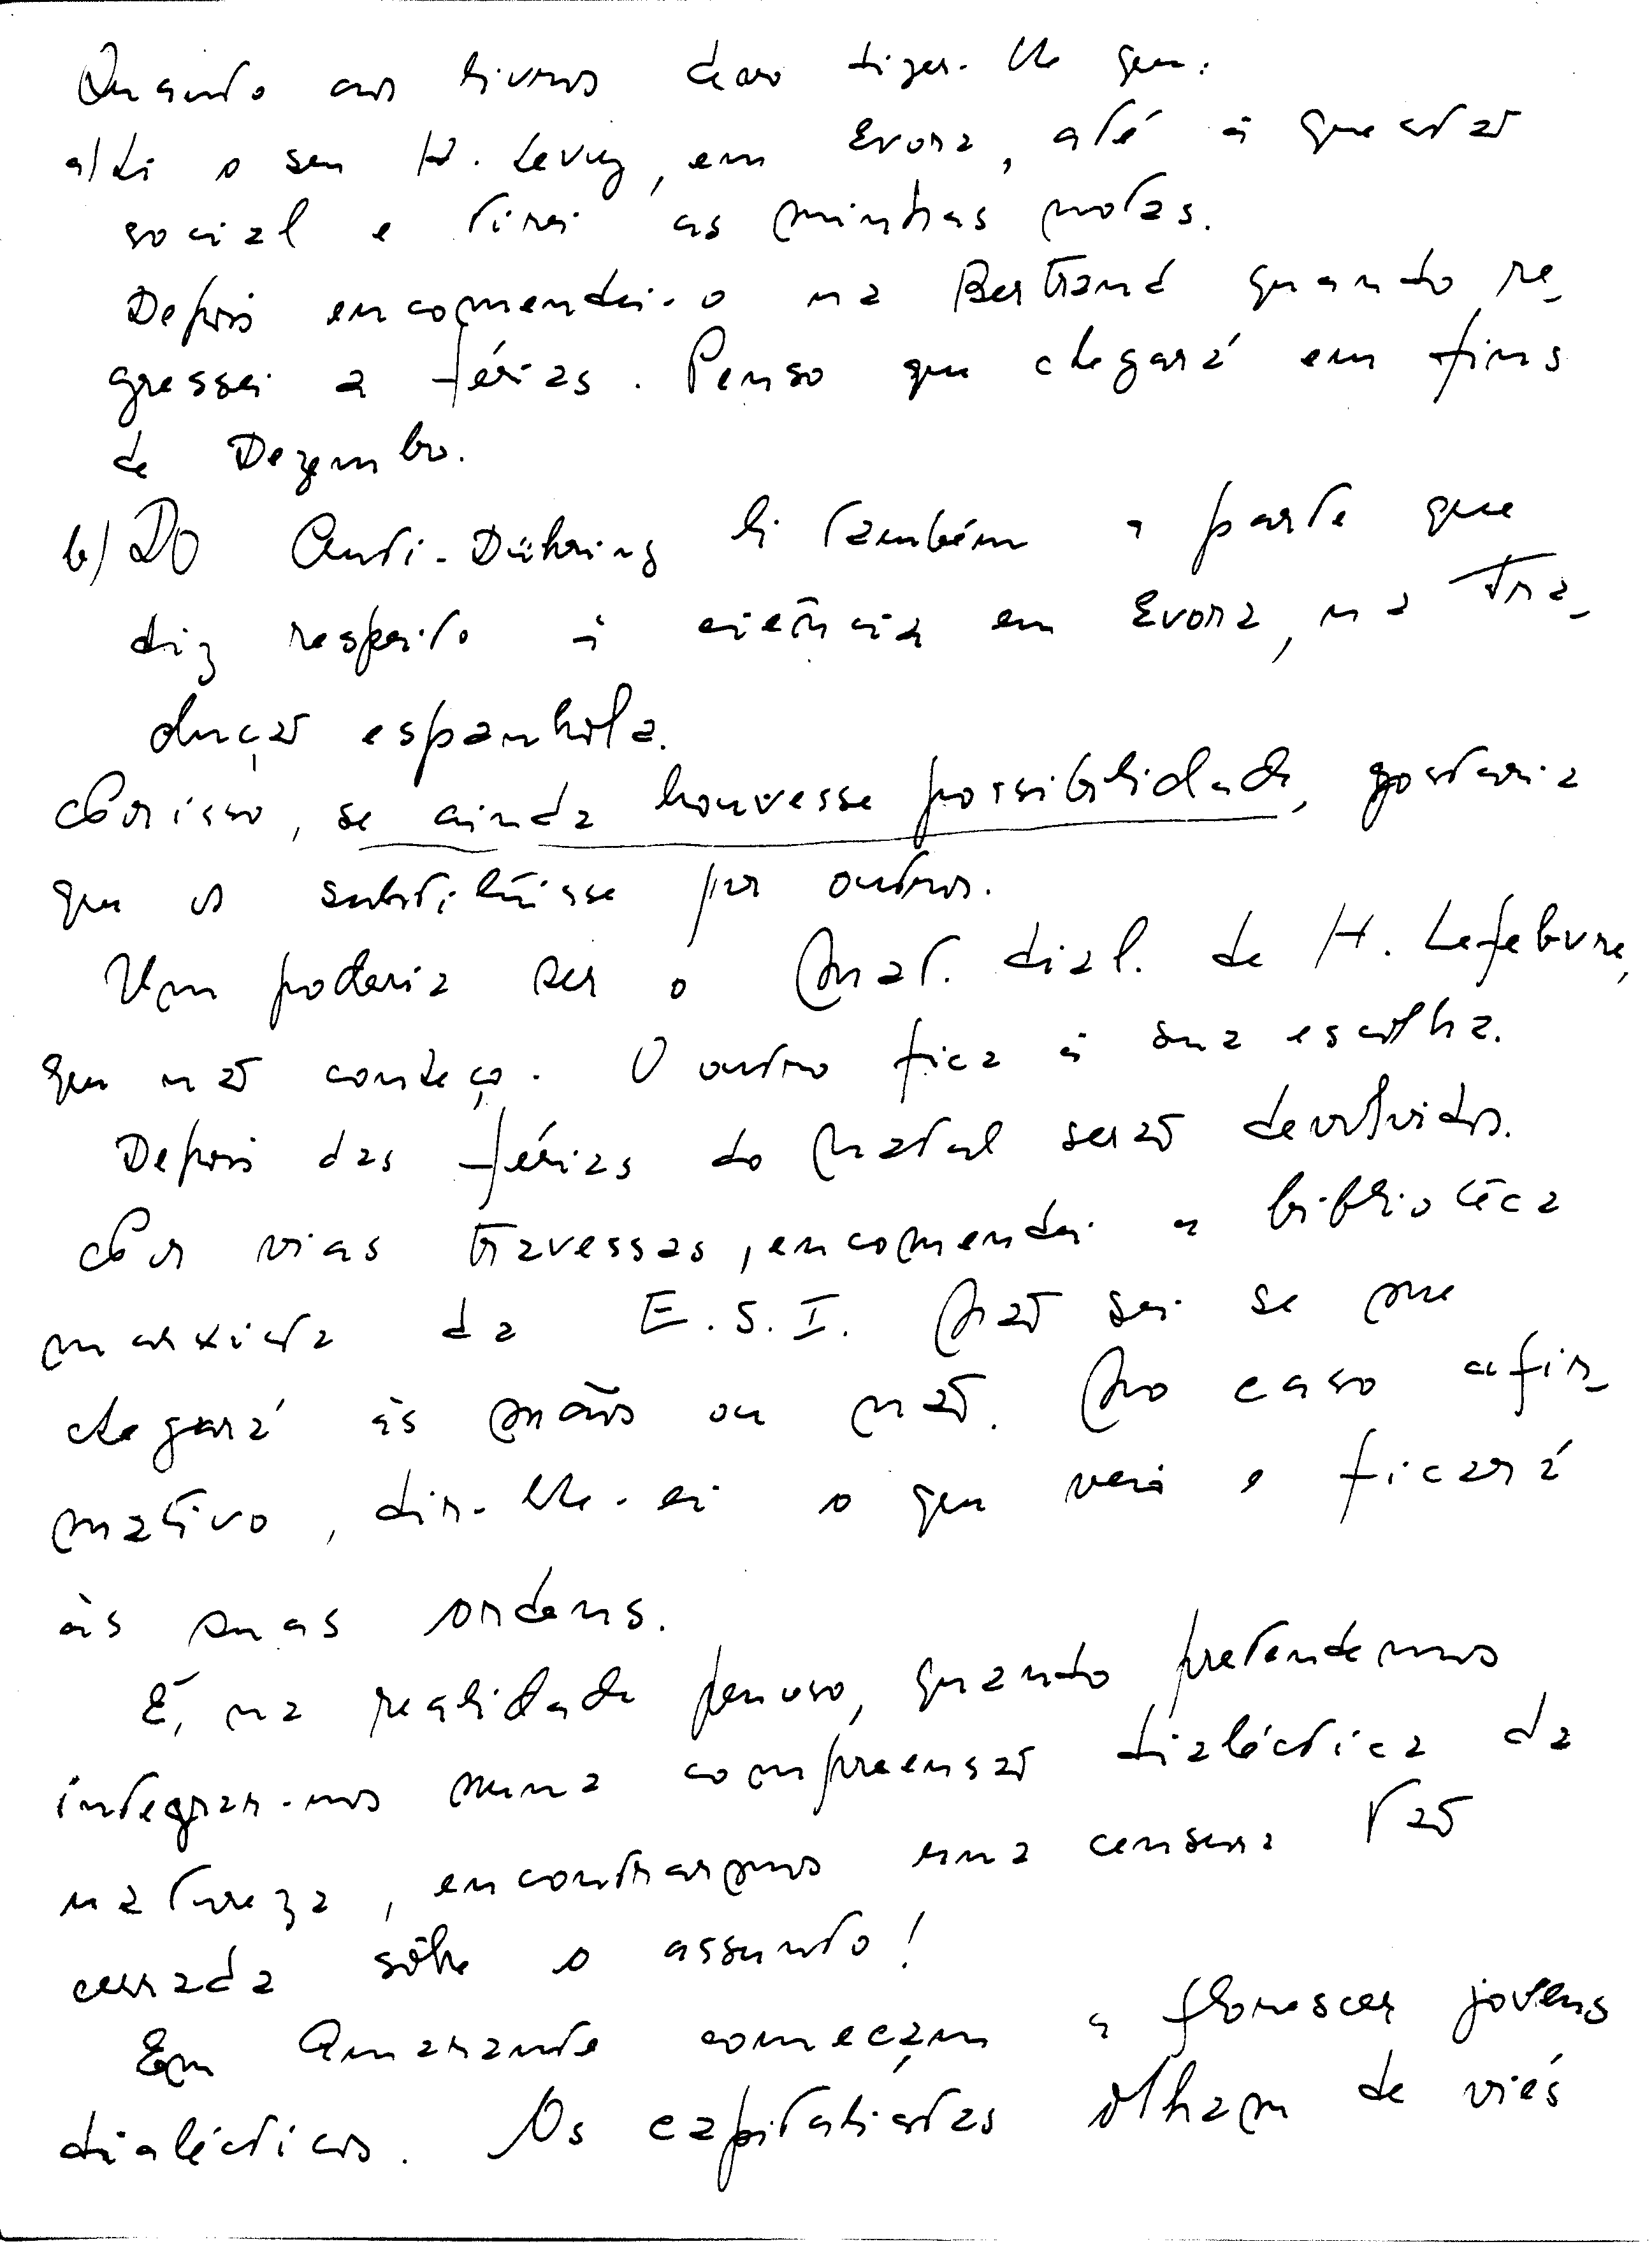 Quando aos livros devo dizer-lhe que:
a) Li o seu H. Levy, em Evora, até à questão
social e tirei as minhas notas.
Depois encomendei-o na Bertrand quando re-
gressei a férias. Penso que chegará em fins
de Dezembro.
b) Do Anti-Dühring li também a parte que
diz respeito à ciência em Evora, na tra-
dução espanhola.
Por isso, se ainda houvesse possibilidade, gostaria
que os substituísse por outros.
Um poderia ser o Mat. dial. de H. Lefebvre,
que não conheço. O outro fica à sua escolha.
Depois das férias do Natal serão devolvidos.
Por vias travessas, encomendei a bibliotéca
marxista da E.S.I. Não sei se me
chegará às mãos ou não. No caso afir-
mativo, dir-lhe-ei o que veio e ficará
às suas ordens.
É, na realidade penoso, quando pretendemos
integrar-nos numa compreensão dialéctica da
natureza, encontrarmos uma censura tão
cerrada sôbre o assunto!
Em Amarante começam a florescer jovens
dialécticos. Os capitalistas olham de viés